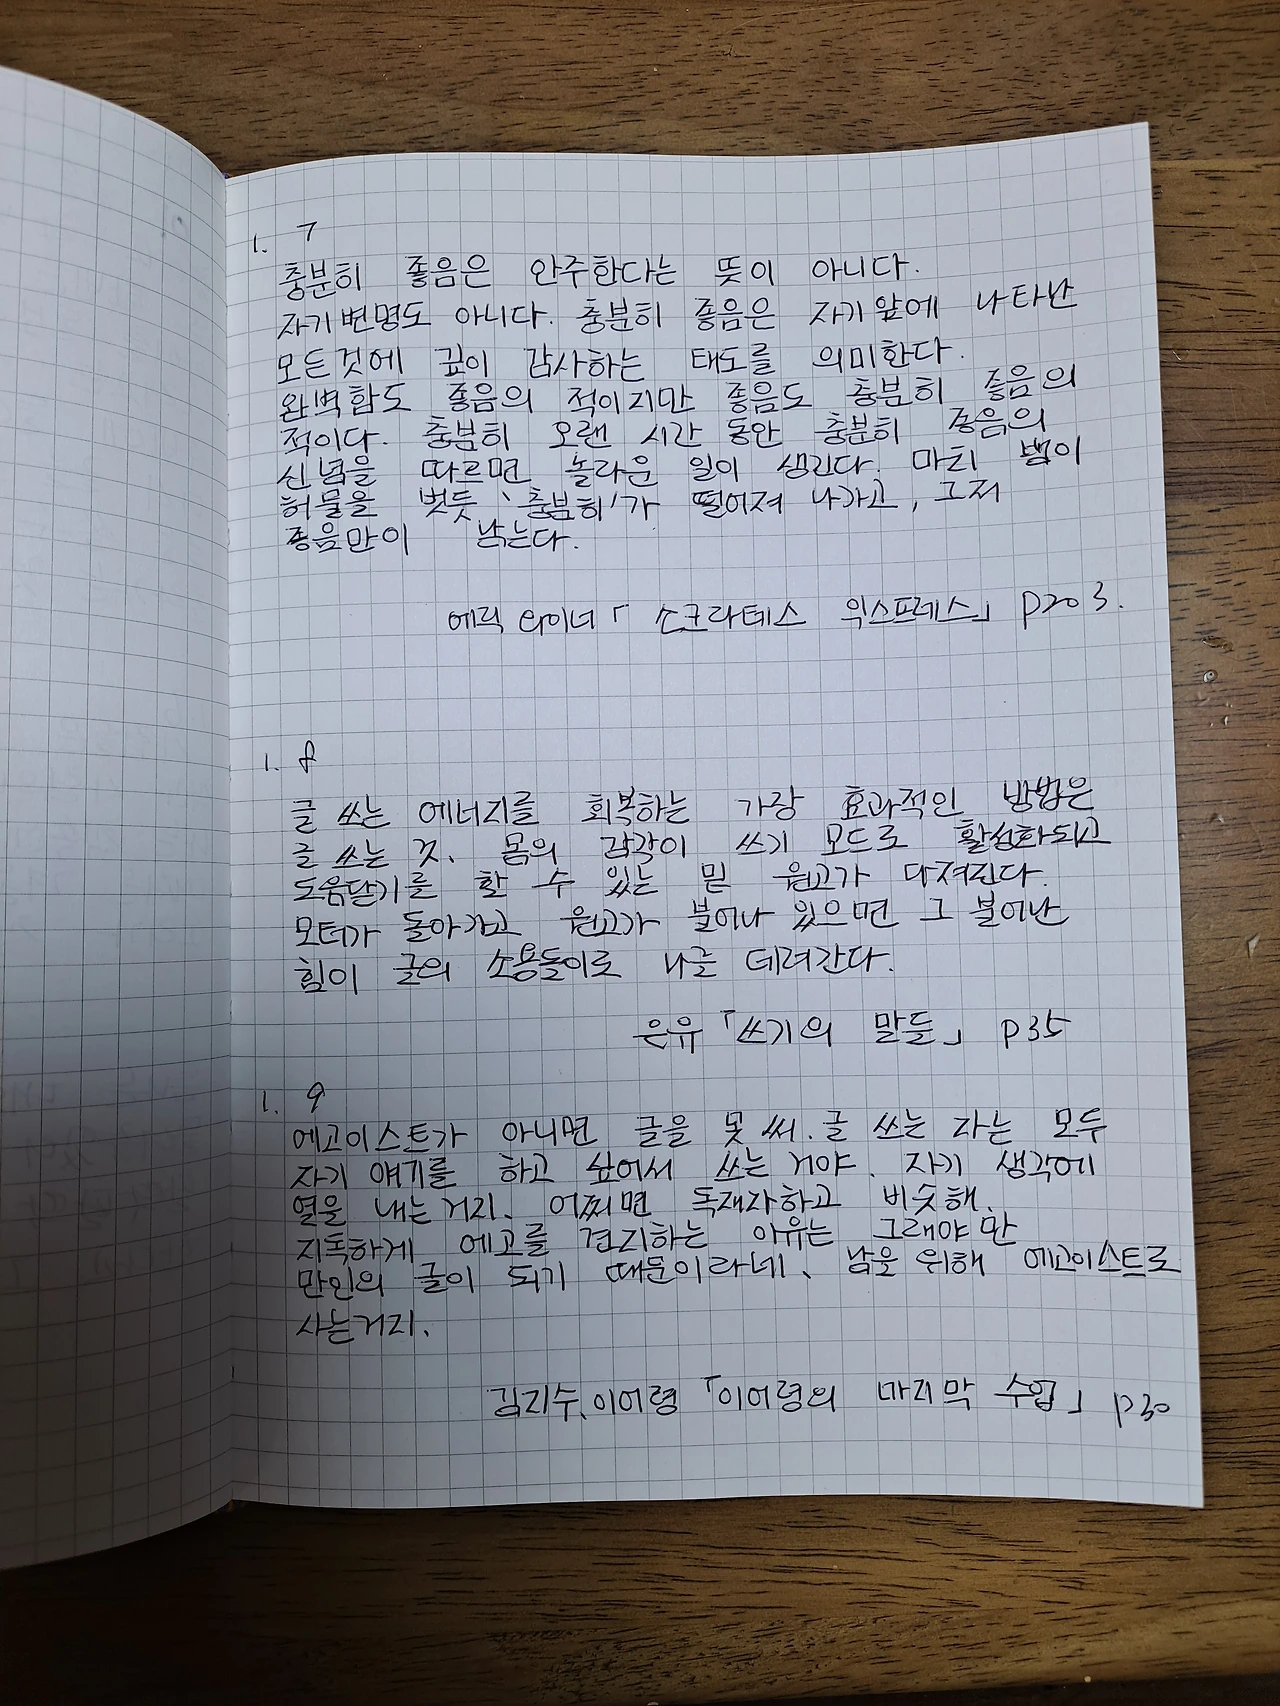 1. 7
충분히 좋음은 안주한다는 뜻이 아니다.
자기변명도 아니다. 충분히 좋음은 자기앞에 나타난
모든것에 깊이 감사하는 태도를 의미한다.
완벽함도 좋음의 적이지만 좋음도 충분히 좋음의
적이다. 충분히 오랜 시간 동안 충분히 좋음의
신념을 따르면 놀라운 일이 생긴다. 마치 뱀이
허물을 벗듯 '충분히'가 떨어져 나가고, 그저
좋음만이 남는다.
에릭 와이너 「소크라테스 익스프레스」 p203.
1. 8
글 쓰는 에너지를 회복하는 가장 효과적인 방법은
글 쓰는 것. 몸의 감각이 쓰기 모드로 활성화되고
도움닫기를 할 수 있는 밑 원고가 다져진다.
모터가 돌아가고 원고가 불어나 있으면 그 불어난
힘이 글의 소용돌이로 나를 데려간다.
은유 「쓰기의 말들」 p35
1. 9
에고이스트가 아니면 글을 못 써. 글 쓰는 자는 모두
자기 얘기를 하고 싶어서 쓰는 거야. 자기 생각에
열을 내는거지. 어쩌면 독재자하고 비슷해.
지독하게 에고를 견지하는 이유는 그래야만
만인의 글이 되기 때문이라네. 남을 위해 에고이스트로
사는거지.
김지수, 이어령 「이어령의 마지막 수업」 p30